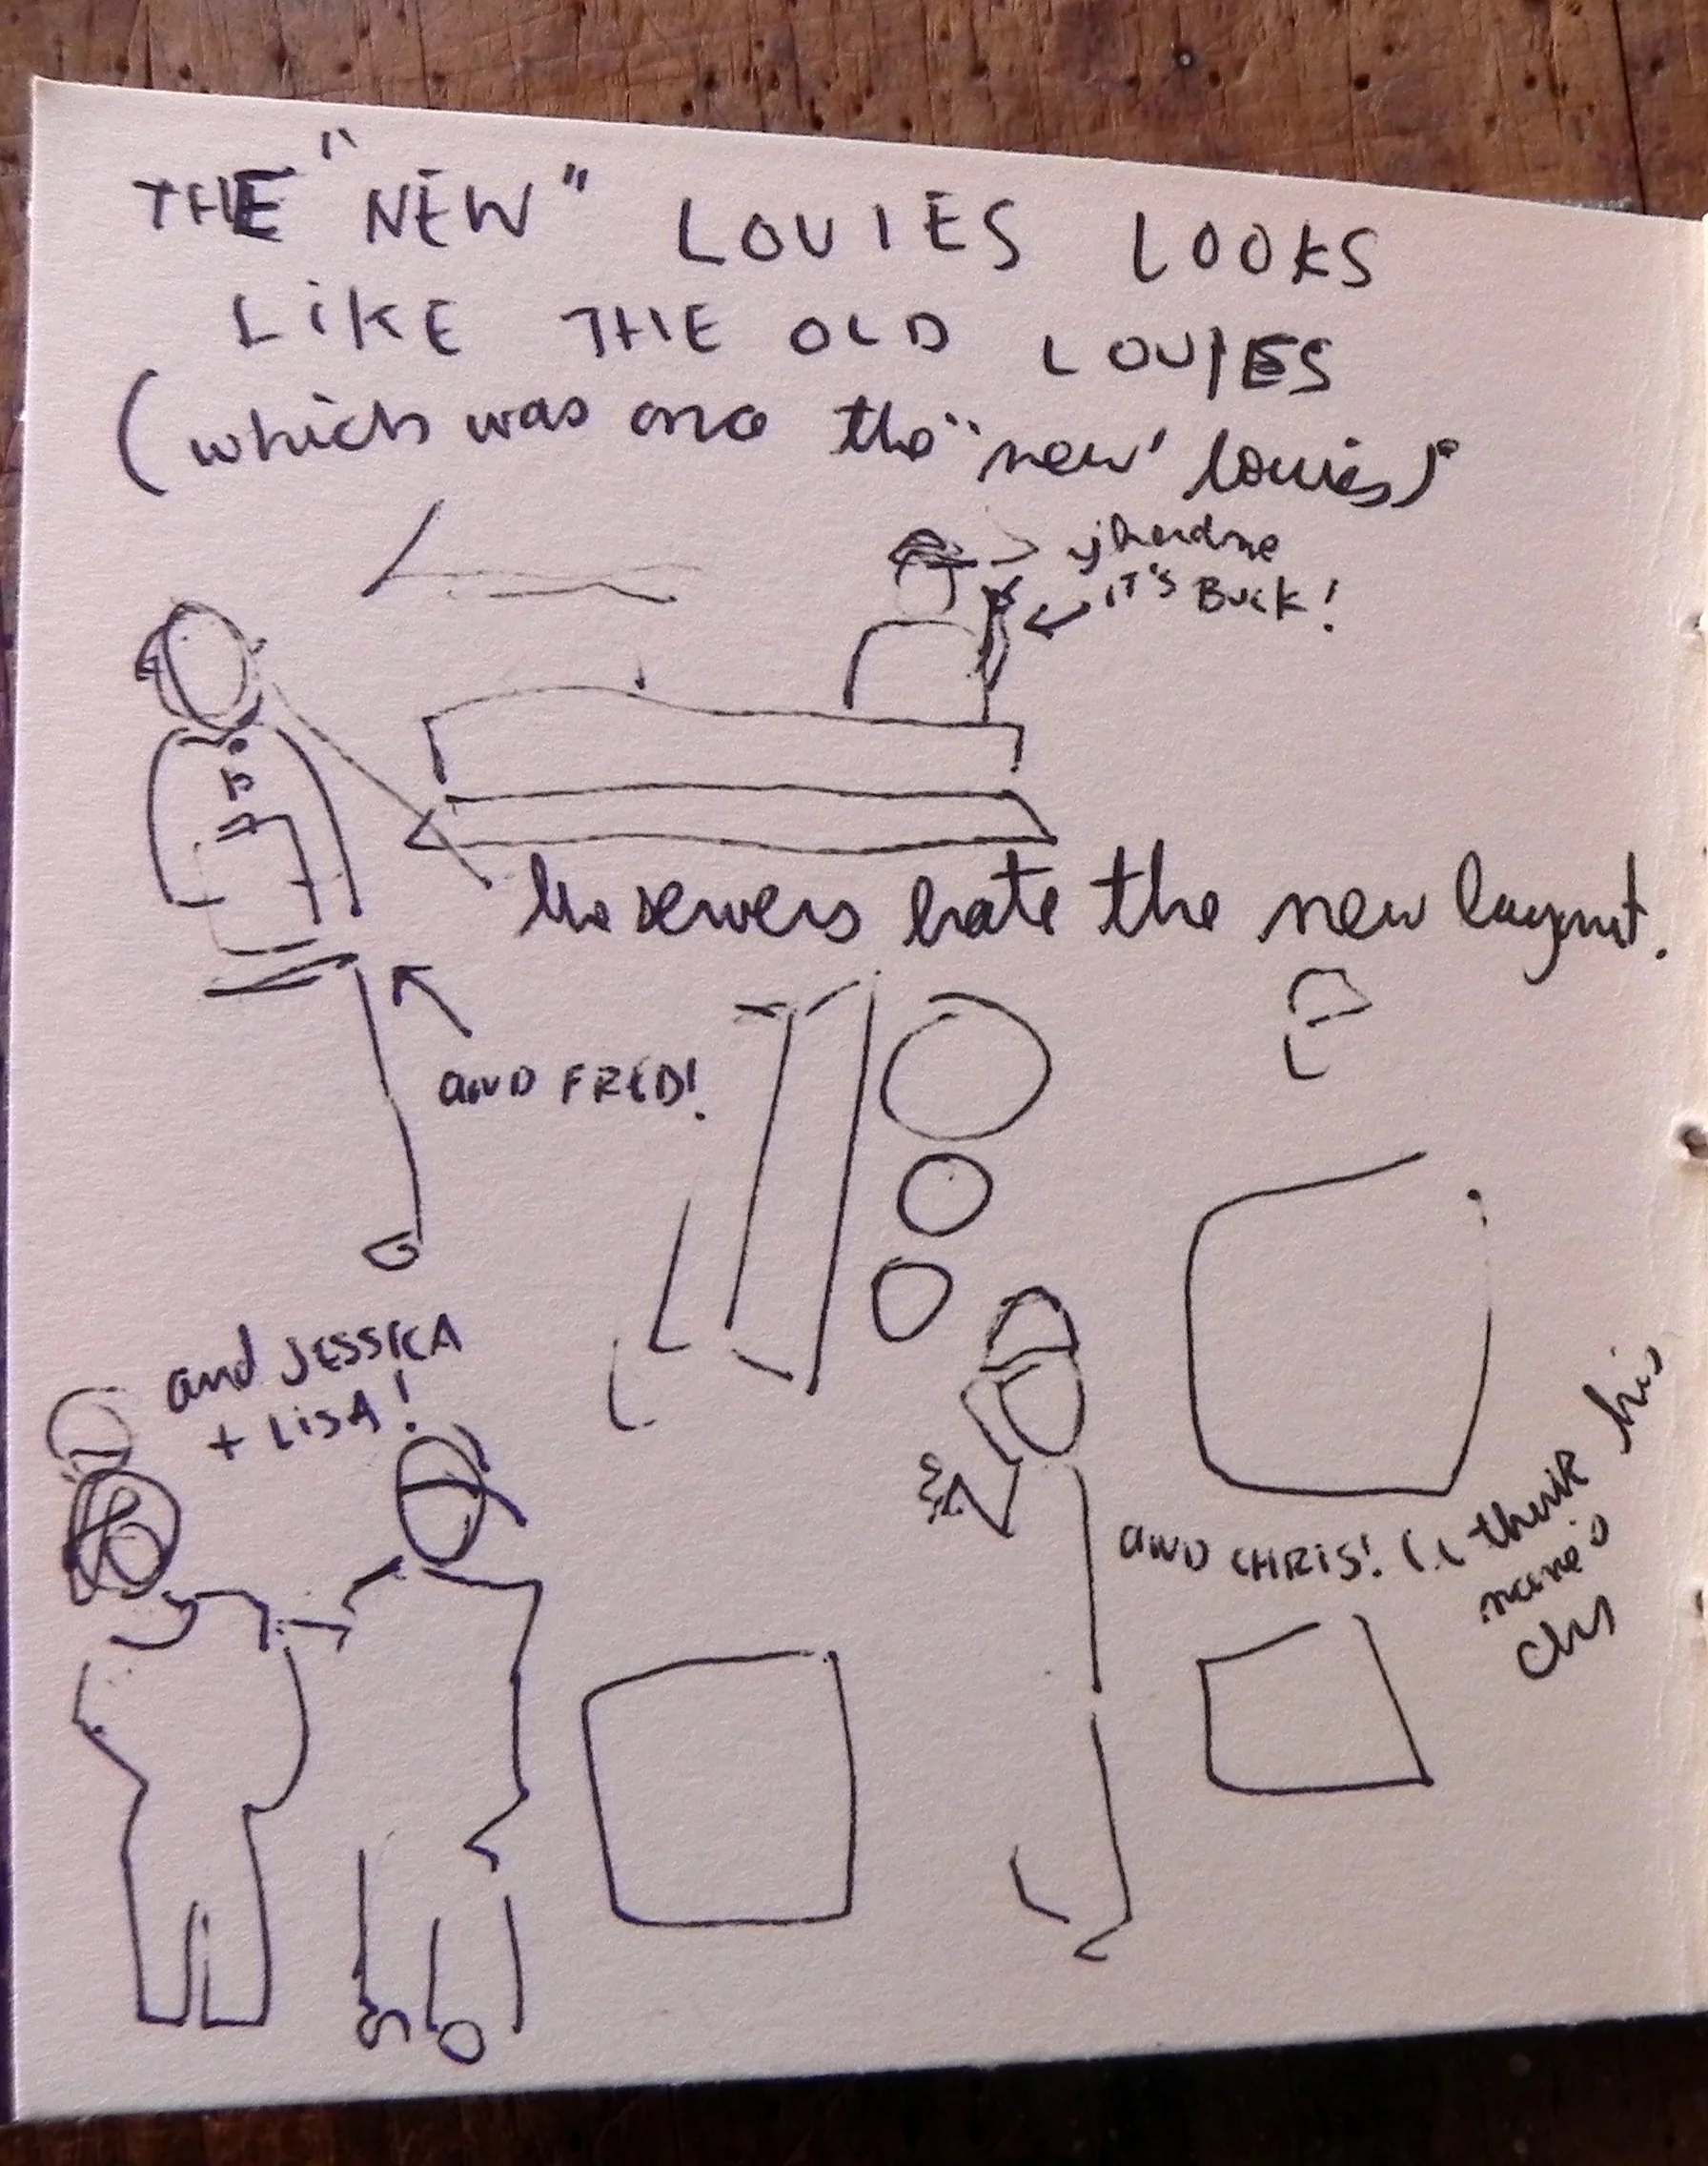 THE "NEW" LOUIES LOOKS
LIKE THE OLD LOUIES
(which was once the "new" louies).
IT'S BUCK!
the servers hate the new layout.
AND FRED!
and JESSICA
+ LISA!
AND CHRIS! (i think his
name's
Chris